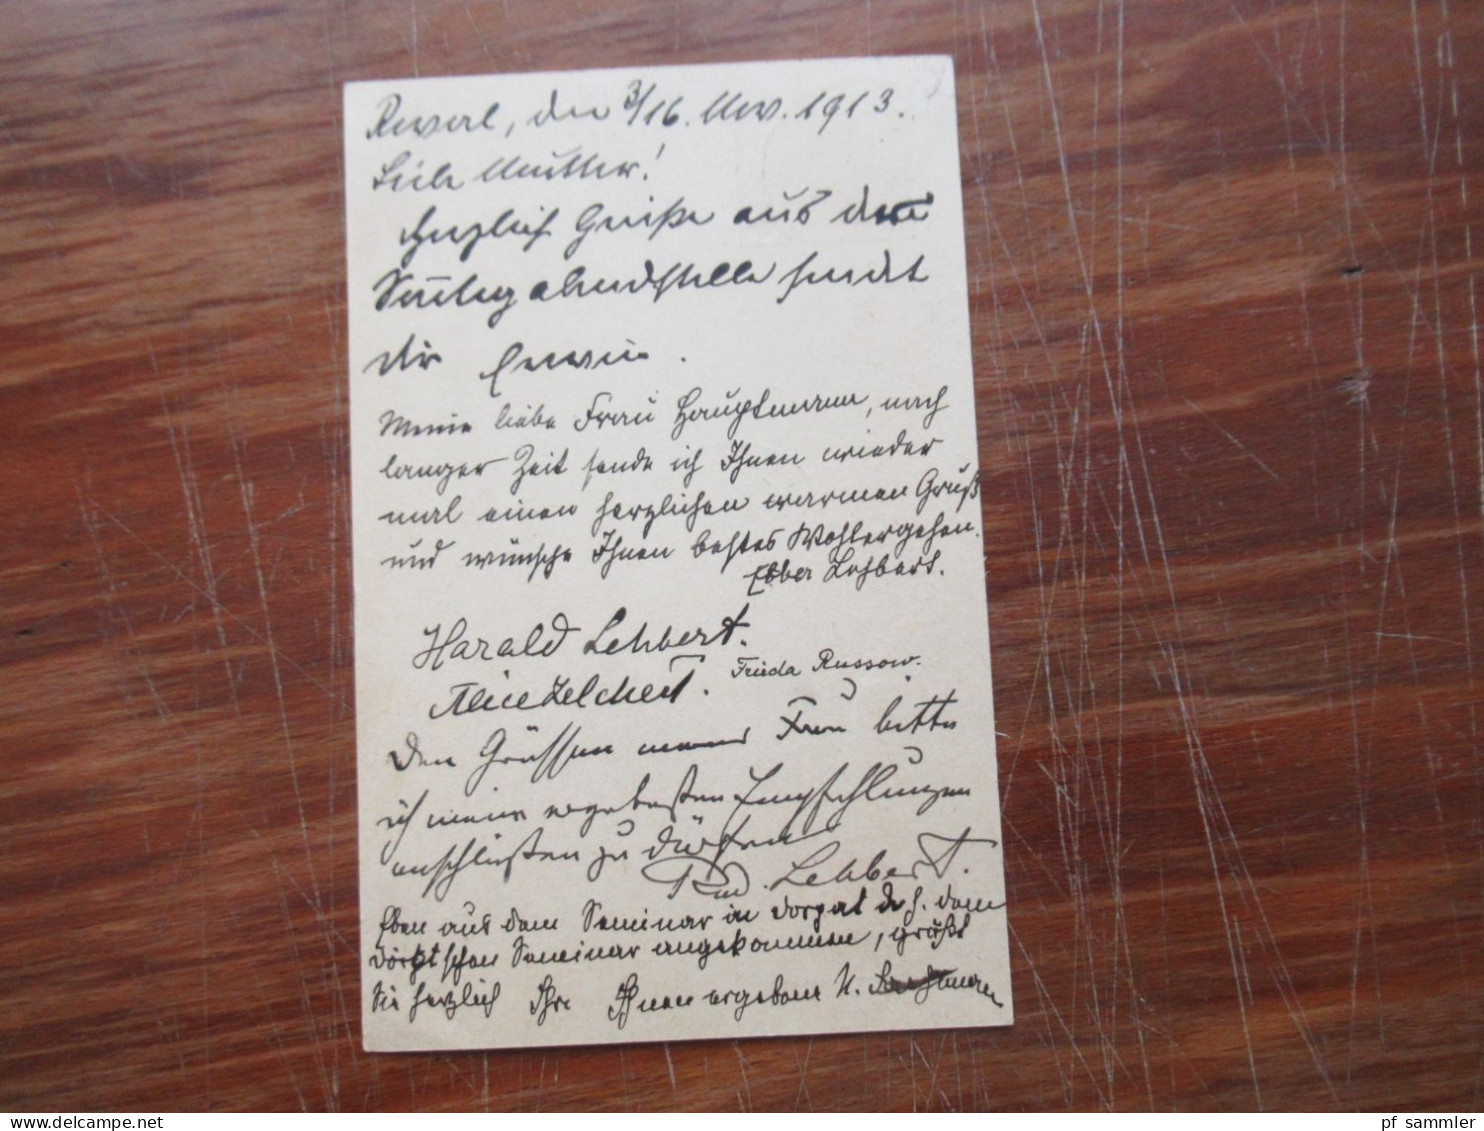 Reval, den 3/16. Nov. 1913.
Liebe Mutter!
Herzlich Grüße aus der
sendet
dir Erwin.
Meine liebe Frau Hauptmann, nach
langer Zeit sende ich Ihnen wieder
mal einen herzlichen warmen Gruß
und wünsche Ihnen bestes Wohlergehen.
Ebba Lehbert.
Harald Lehbert.
Frieda Russow.
Alice Zelchert.
Den Grüssen meiner Frau bitte
ich meine ergebensten Empfehlungen
anschließen zu dürfen
Rud. Lehbert.
Eben aus dem Seminar in Dorpat d. h. dem
dörptschen Seminar angekommen, grüßt
Sie herzlich Ihr Ihnen ergebener N.
pf sammler